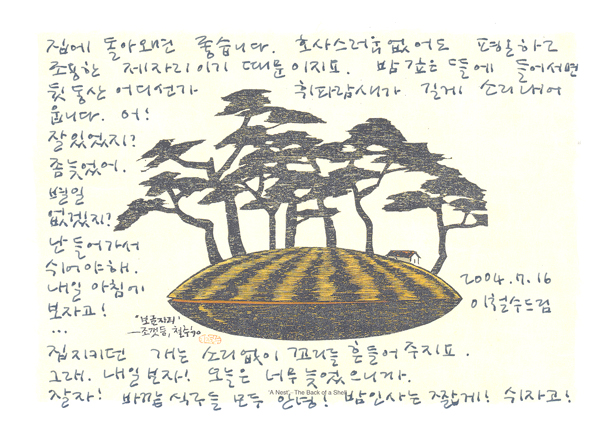 집에 돌아오면 좋습니다. 호사스러움 없어도 편안하고
조용한 제자리이기 때문이지요. 밤 깊은 뜰에 들어서면
뒷동산 어디선가 휘파람새가 길게 소리내어
웁니다. 어!
잘있었지?
좀늦었어.
별일
없었지?
난 들어가서
쉬어야해.
내일 아침에
보자고!
...
2004.7.16
이철수드림
"보금자리"
-조갯등, 철수90
집지키던 개는 소리없이 꼬리를 흔들어 주지요.
그래. 내일 보자! 오늘은 너무 늦었으니까.
'A Nest' - The Back of a Shell
잘자! 바깥 식구들 모두 안녕! 밤인사는 짧게! 쉬자고!